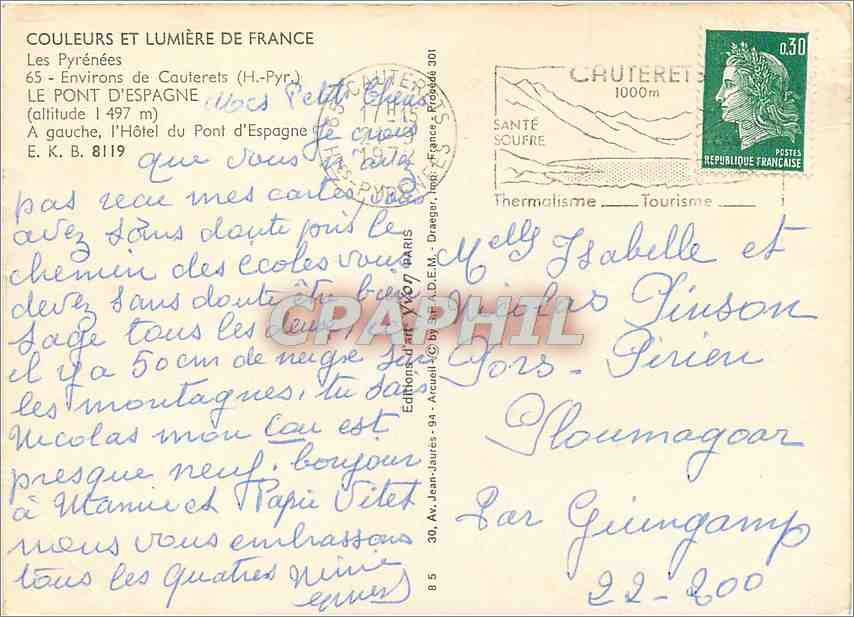 COULEURS ET LUMIÈRE DE FRANCE
Les Pyrénées
65 - Environs de Cauterets (H.-Pyr.)
LE PONT D'ESPAGNE
(altitude 1 497 m)
A gauche, l'Hôtel du Pont d'Espagne
E. K. B. 8119
Mes Petit
je crois
que vous
pas recu mes cartes
avez sans doute pris le
chemin des écoles vous
devez sans doute être bien
sage tous les deux
il y a 50 cm de neige sur
les montagnes, tu sais
Nicolas mon Cou est
presque neuf. bonjour
à Mamie et Papie Vitet
nous vous embrassons
tous les quatres
65 CAUTERETS
17H15
HTES PYRENEES
CAUTERETS
1000m
SANTÉ
SOUFRE
Thermalisme Tourisme
0,30
POSTES
REPUBLIQUE FRANÇAISE
Melle Isabelle et
Nicolas Pinson
Pors-Pirien
Ploumagoar
Par Guingamp
22-200
Editions d'art yvon PARIS
8 5 30, Av. Jean-Jaurès - 94 - Arcueil - © by S.P.A.D.E.M. - Draeger, Imp. - France - Procédé 301
CPAPHIL